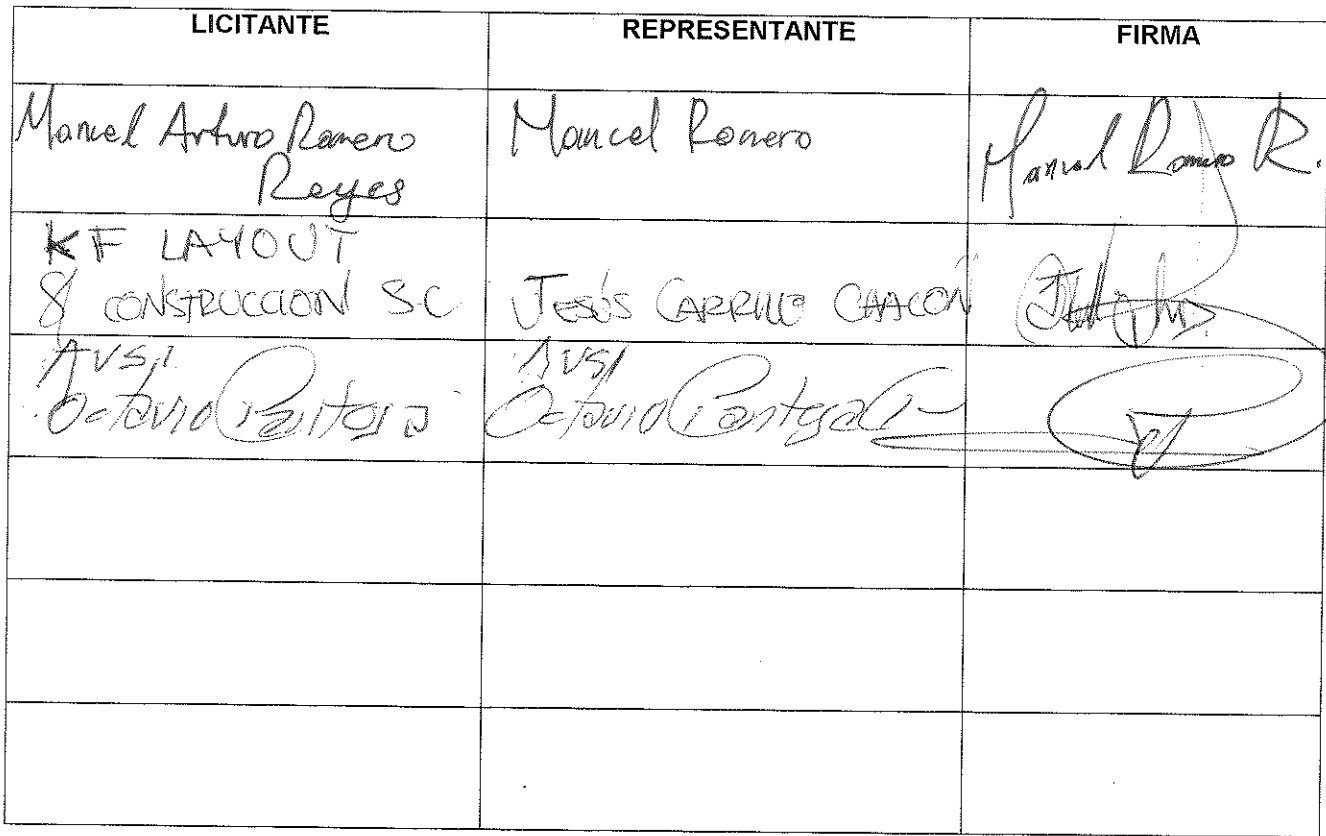 LICITANTE REPRESENTANTE FIRMA
Manuel Arturo Romero Manuel Romero Manuel Romero R.
Reyes
KF LAYOUT
& CONSTRUCCION S.C JESÚS CARRILLO CHACON
AVSI AVSI
Octavio Pantoja Octavio